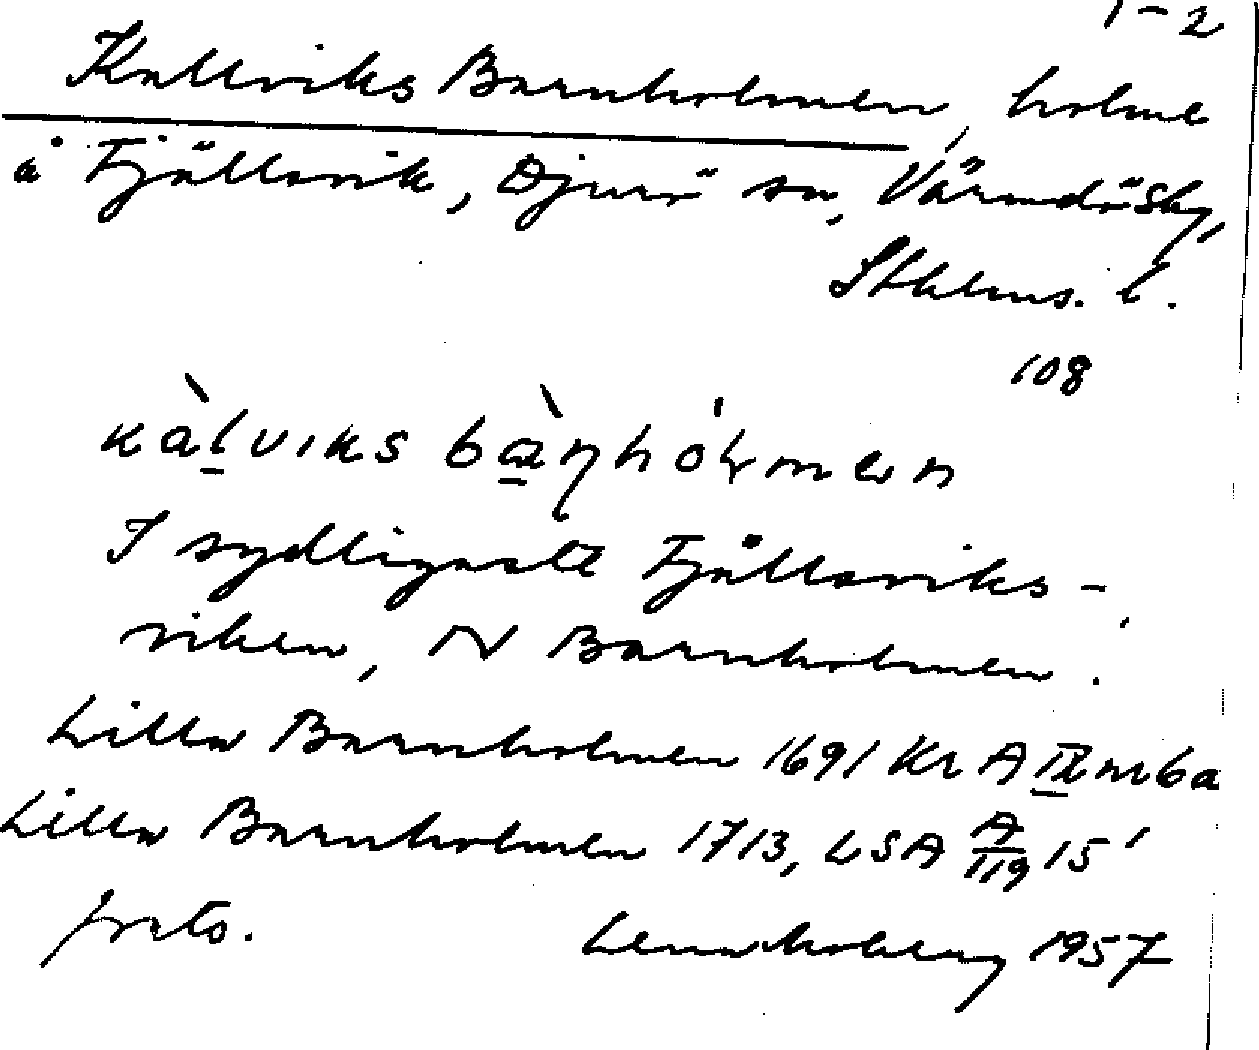 1-2
Kallviks Barnholmen, holme
å Fjällsvik, Djurö sn, Värmdö sky,
Sthlms. l.
108
kàlviks bàɳhólmen
I sydligaste Fjällsviks-
viken, N Barnholmen.
Lilla Barnholmen 1691 Kr A IX nr 6a
Lilla Barnholmen 1713, LSA A/119 15'
prats. 1957